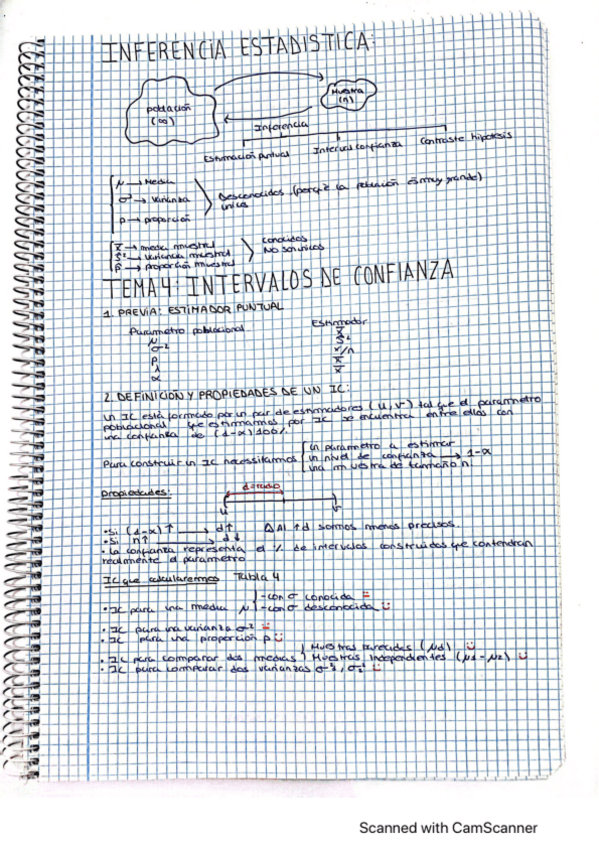 INFERENCIA ESTADISTICA:
población
(∞)
Muestra
(n)
Inferencia
Estimación puntual
Interval confianza
Contraste hipotesis
μ → Media
σ² → Varianza
p → proporción
Desconocidas (porq? la población es muy grande)
única
x̄ → media muestral
s² → varianza muestral
p̂ → proporción muestral
conocidas
No son únicas
TEMA 4: INTERVALOS DE CONFIANZA
1. PREVIA: ESTIMADOR PUNTUAL
Parametro poblacional
Estimador
μ
x̄
σ²
s²
p
x/n
λ
x̄
α
x̄
2. DEFINICIÓN Y PROPIEDADES DE UN IC:
un IC está formado por un par de estimadores (u,v) tal que el parametro
poblacional que estimamos por IC se encuentra entre ellos con
una confianza de (1-α)100%
Para construir un IC necesitamos
un parámetro a estimar
un nivel de confianza → 1-α
una muestra de tamaño n
Propiedades:
u
v
• Si (1-α)↑ → d↑ ΔAl ↑d somos menos precisos.
• Si n↑ → d↓
• La confianza representa el % de intervalos construidos que contendran
realmente el parametro
IC que calcularemos Tabla 4
• IC para una media μ
- con σ conocida
- con σ desconocida
• IC para una varianza σ²
• IC para una proporción p
• IC para comparar dos medias
Muestras pareadas (μd)
Muestras independientes (μ1-μ2)
• IC para comparar dos varianzas
Scanned with CamScanner